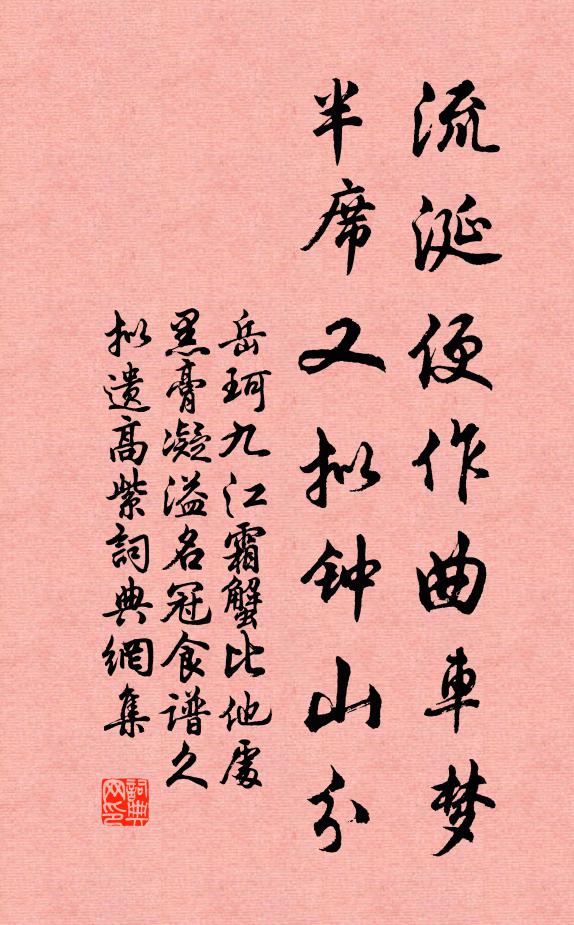 流涎便作曲车梦
半席又拟钟山分
岳珂九江霜蟹比他处
黑膏凝溢名冠食谱久
拟遗高紫詞典網集
詞典网印